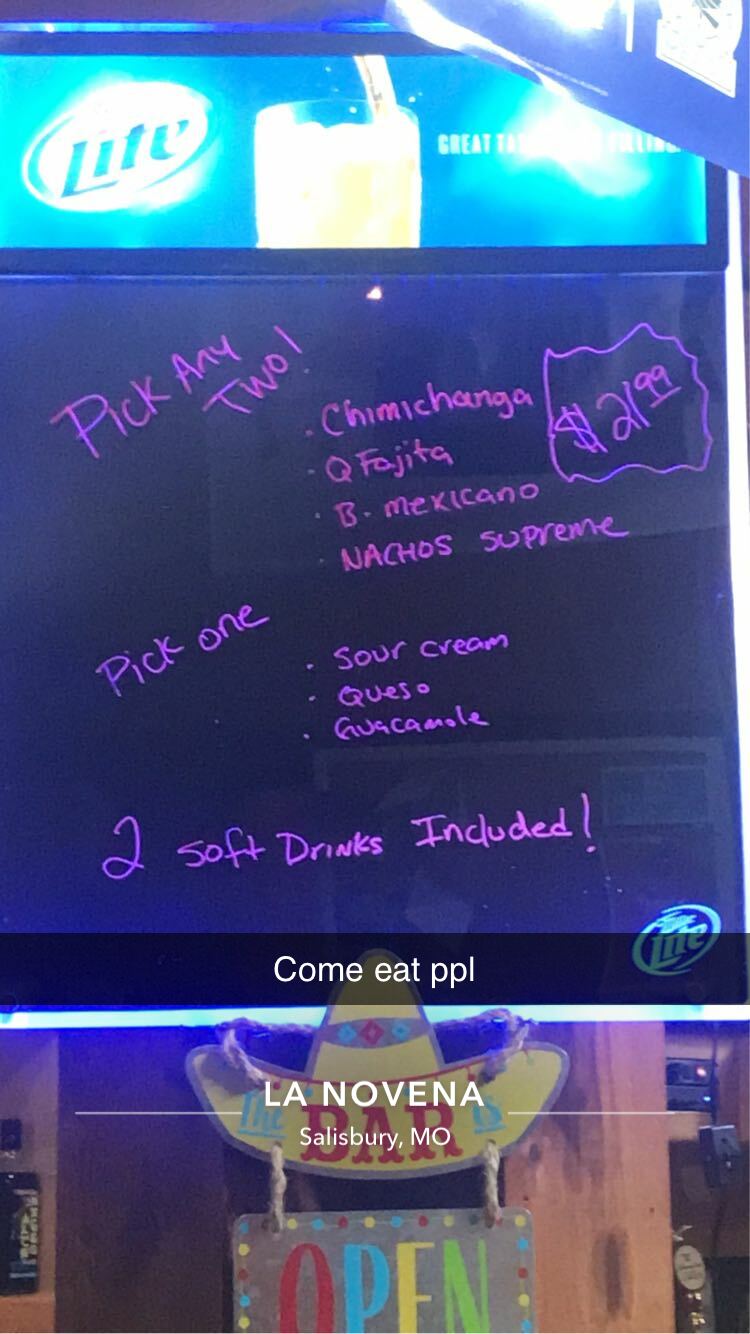 Lite
GREAT TA
Pick Any
Two!
$21.99
· Chimichanga
· Q Fajita
· B. mexicano
· NACHOS Supreme
Pick one
· Sour cream
· Queso
· Guacamole
2 Soft Drinks Included!
Lite
Come eat ppl
LA NOVENA
Salisbury, MO
The BAR is
OPEN